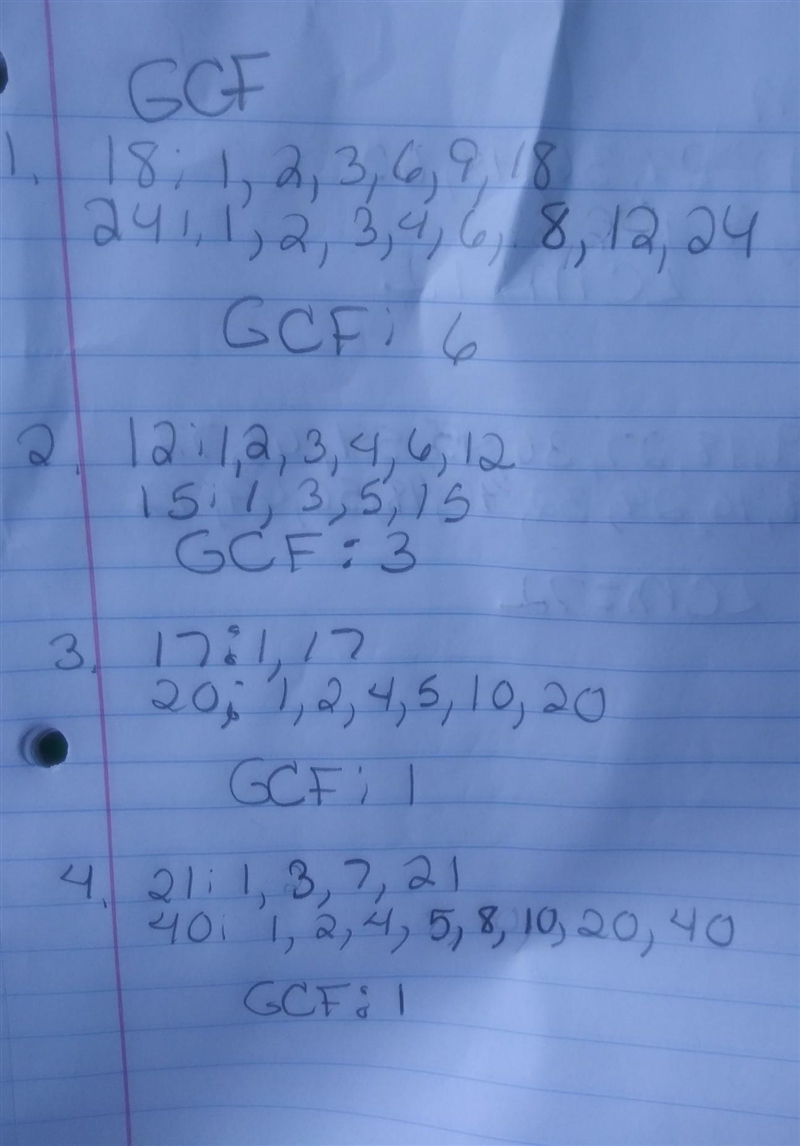 GCF
1. 18: 1, 2, 3, 6, 9, 18
24: 1, 2, 3, 4, 6, 8, 12, 24
GCF: 6
2. 12: 1, 2, 3, 4, 6, 12
15: 1, 3, 5, 15
GCF: 3
3. 17: 1, 17
20: 1, 2, 4, 5, 10, 20
GCF: 1
4. 21: 1, 3, 7, 21
40: 1, 2, 4, 5, 8, 10, 20, 40
GCF: 1